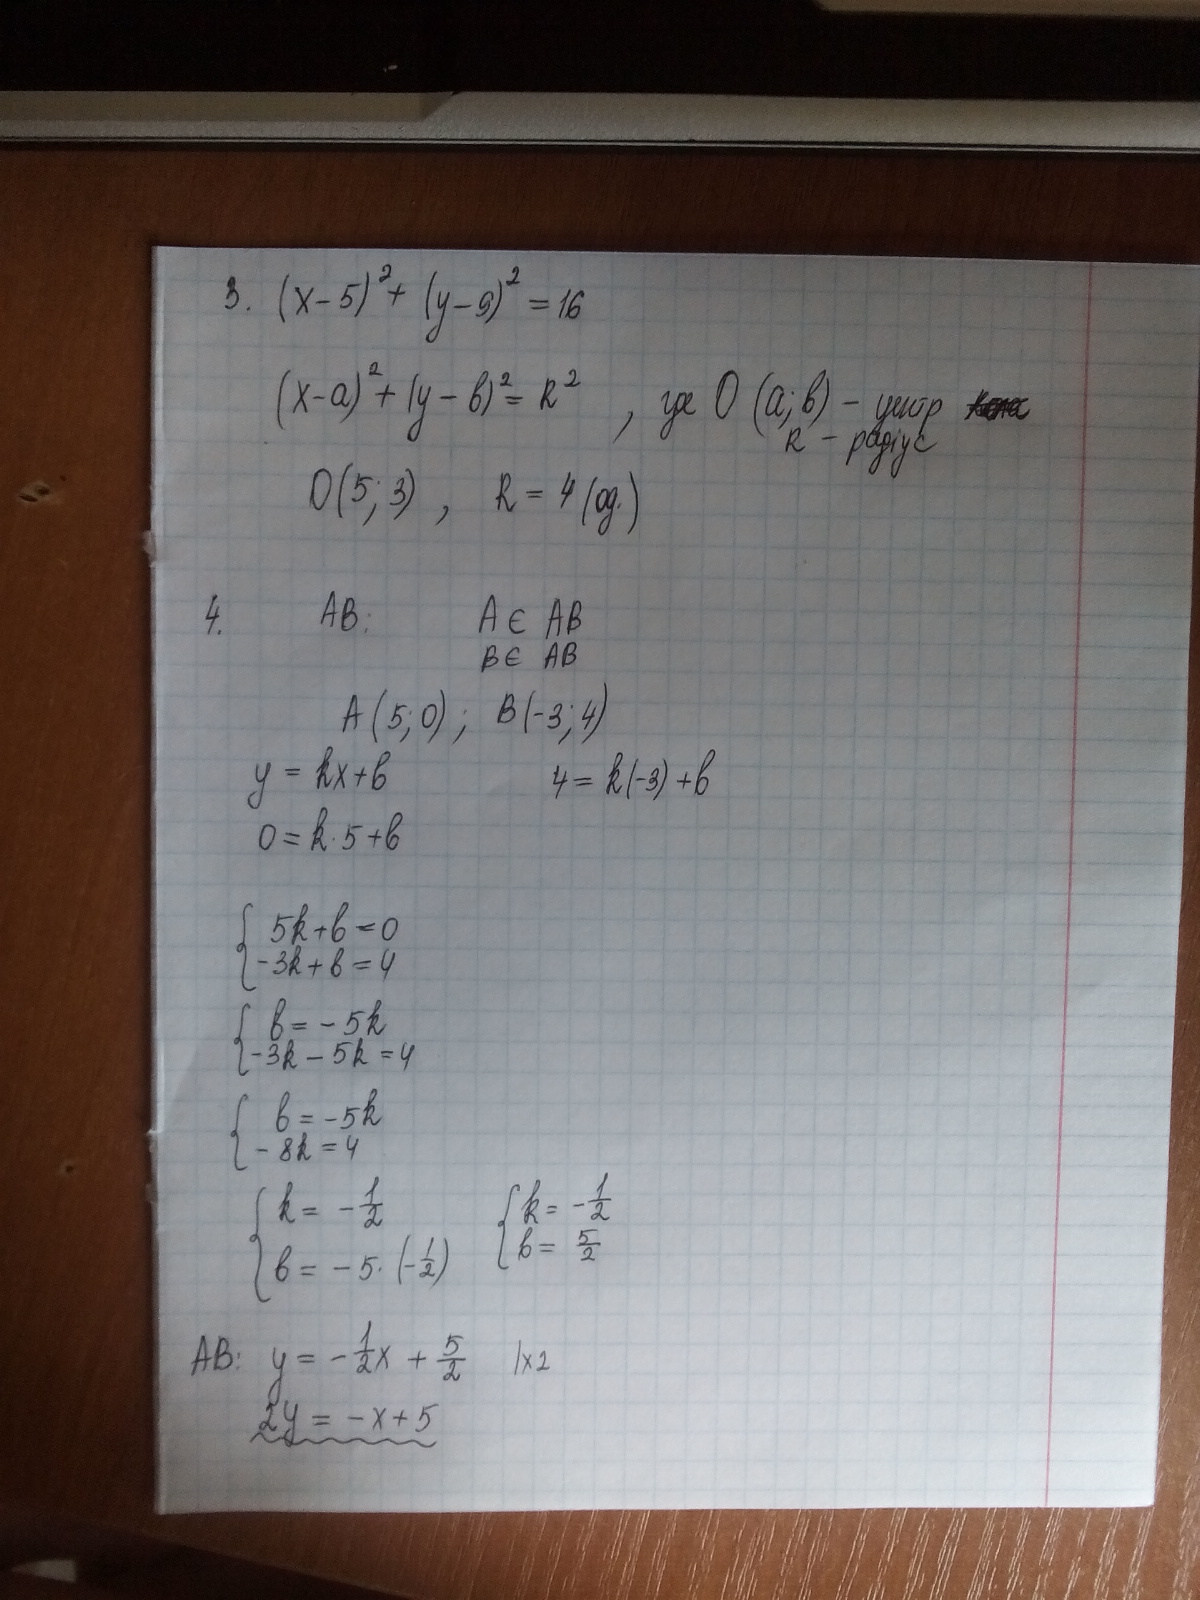 3. (x-5)² + (y-9)² = 16
(x-a)² + (y-b)² = R² , где O (a; b) - центр
R - радіус
O(5; 3) , R = 4 (од.)
4. AB: A ∈ AB
B ∈ AB
A (5; 0) ; B (-3; 4)
y = kx + b 4 = k(-3) + b
0 = k·5 + b
{ 5k + b = 0
-3k + b = 4
{ b = -5k
-3k - 5k = 4
{ b = -5k
-8k = 4
{ k = -1/2 { k = -1/2
b = -5·(-1/2) b = 5/2
AB: y = -1/2x + 5/2 |x2
2y = -x + 5